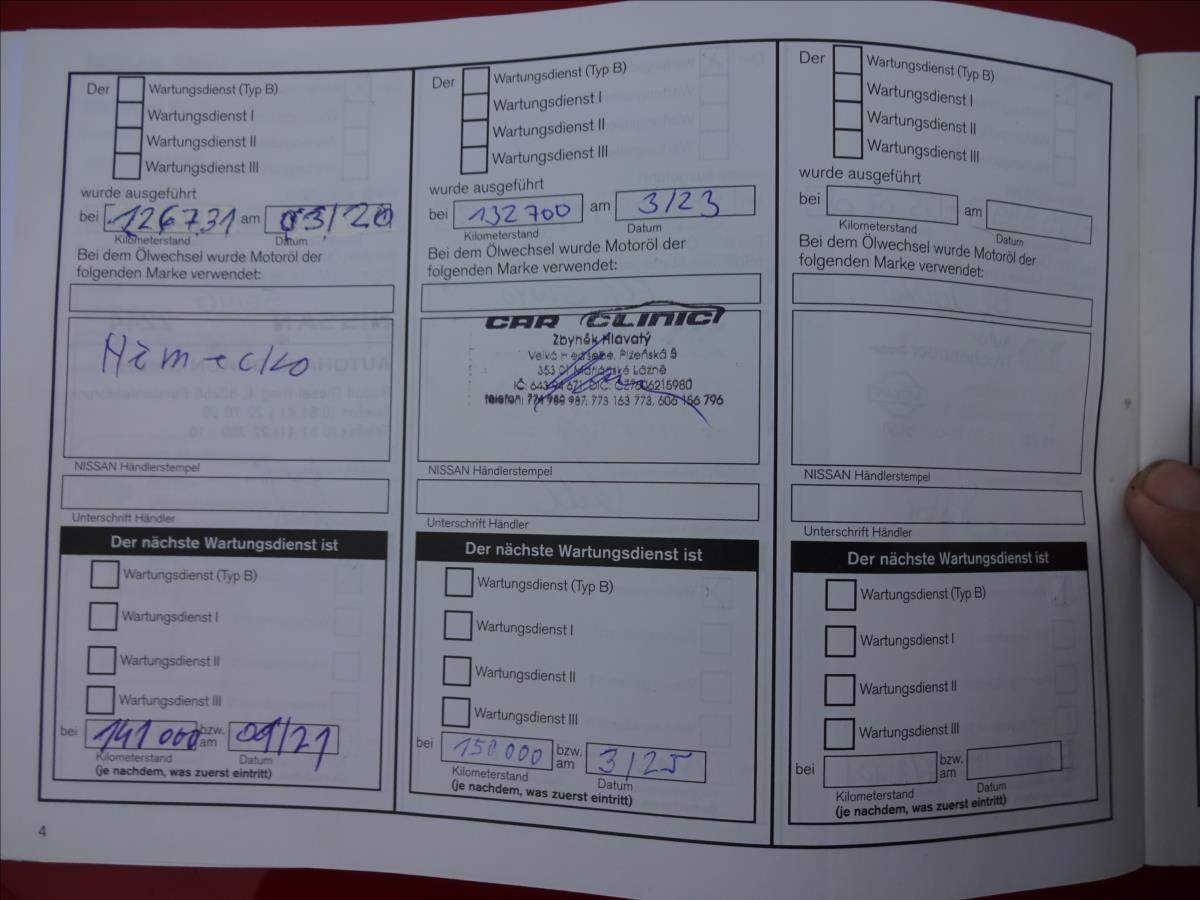 Der
Wartungsdienst (Typ B)
Wartungsdienst I
Wartungsdienst II
Wartungsdienst III
wurde ausgeführt
bei 126731 am 03/20
Kilometerstand Datum
Bei dem Ölwechsel wurde Motoröl der
folgenden Marke verwendet:
Německo
NISSAN Händlerstempel
Unterschrift Händler
Der nächste Wartungsdienst ist
Wartungsdienst (Typ B)
Wartungsdienst I
Wartungsdienst II
Wartungsdienst III
bei 141 000 bzw. am 09/21
Kilometerstand Datum
(je nachdem, was zuerst eintritt)
4
Der
Wartungsdienst (Typ B)
Wartungsdienst I
Wartungsdienst II
Wartungsdienst III
wurde ausgeführt
bei 132700 am 3/23
Kilometerstand Datum
Bei dem Ölwechsel wurde Motoröl der
folgenden Marke verwendet:
CAR CLINIC
Zbyněk Hlavatý
Velká Hleďsebe, Plzeňská
353 01 Mariánské Lázně
IČ: DIČ:
telefon: 773 163 773, 606 156 796
NISSAN Händlerstempel
Unterschrift Händler
Der nächste Wartungsdienst ist
Wartungsdienst (Typ B)
Wartungsdienst I
Wartungsdienst II
Wartungsdienst III
bei 150 000 bzw. am 3/25
Kilometerstand Datum
(je nachdem, was zuerst eintritt)
Der
Wartungsdienst (Typ B)
Wartungsdienst I
Wartungsdienst II
Wartungsdienst III
wurde ausgeführt
bei am
Kilometerstand Datum
Bei dem Ölwechsel wurde Motoröl der
folgenden Marke verwendet:
NISSAN Händlerstempel
Unterschrift Händler
Der nächste Wartungsdienst ist
Wartungsdienst (Typ B)
Wartungsdienst I
Wartungsdienst II
Wartungsdienst III
bei bzw. am
Kilometerstand Datum
(je nachdem, was zuerst eintritt)